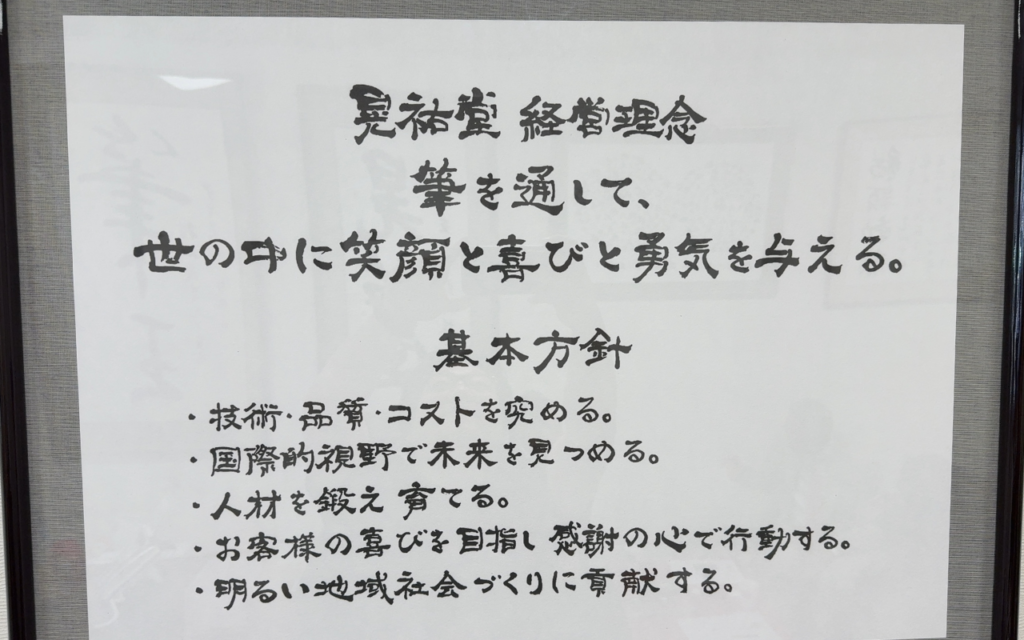 晃祐堂 経営理念
筆を通して、
世の中に笑顔と喜びと勇気を与える。
基本方針
・技術・品質・コストを究める。
・国際的視野で未来を見つめる。
・人材を鍛え育てる。
・お客様の喜びを目指し感謝の心で行動する。
・明るい地域社会づくりに貢献する。